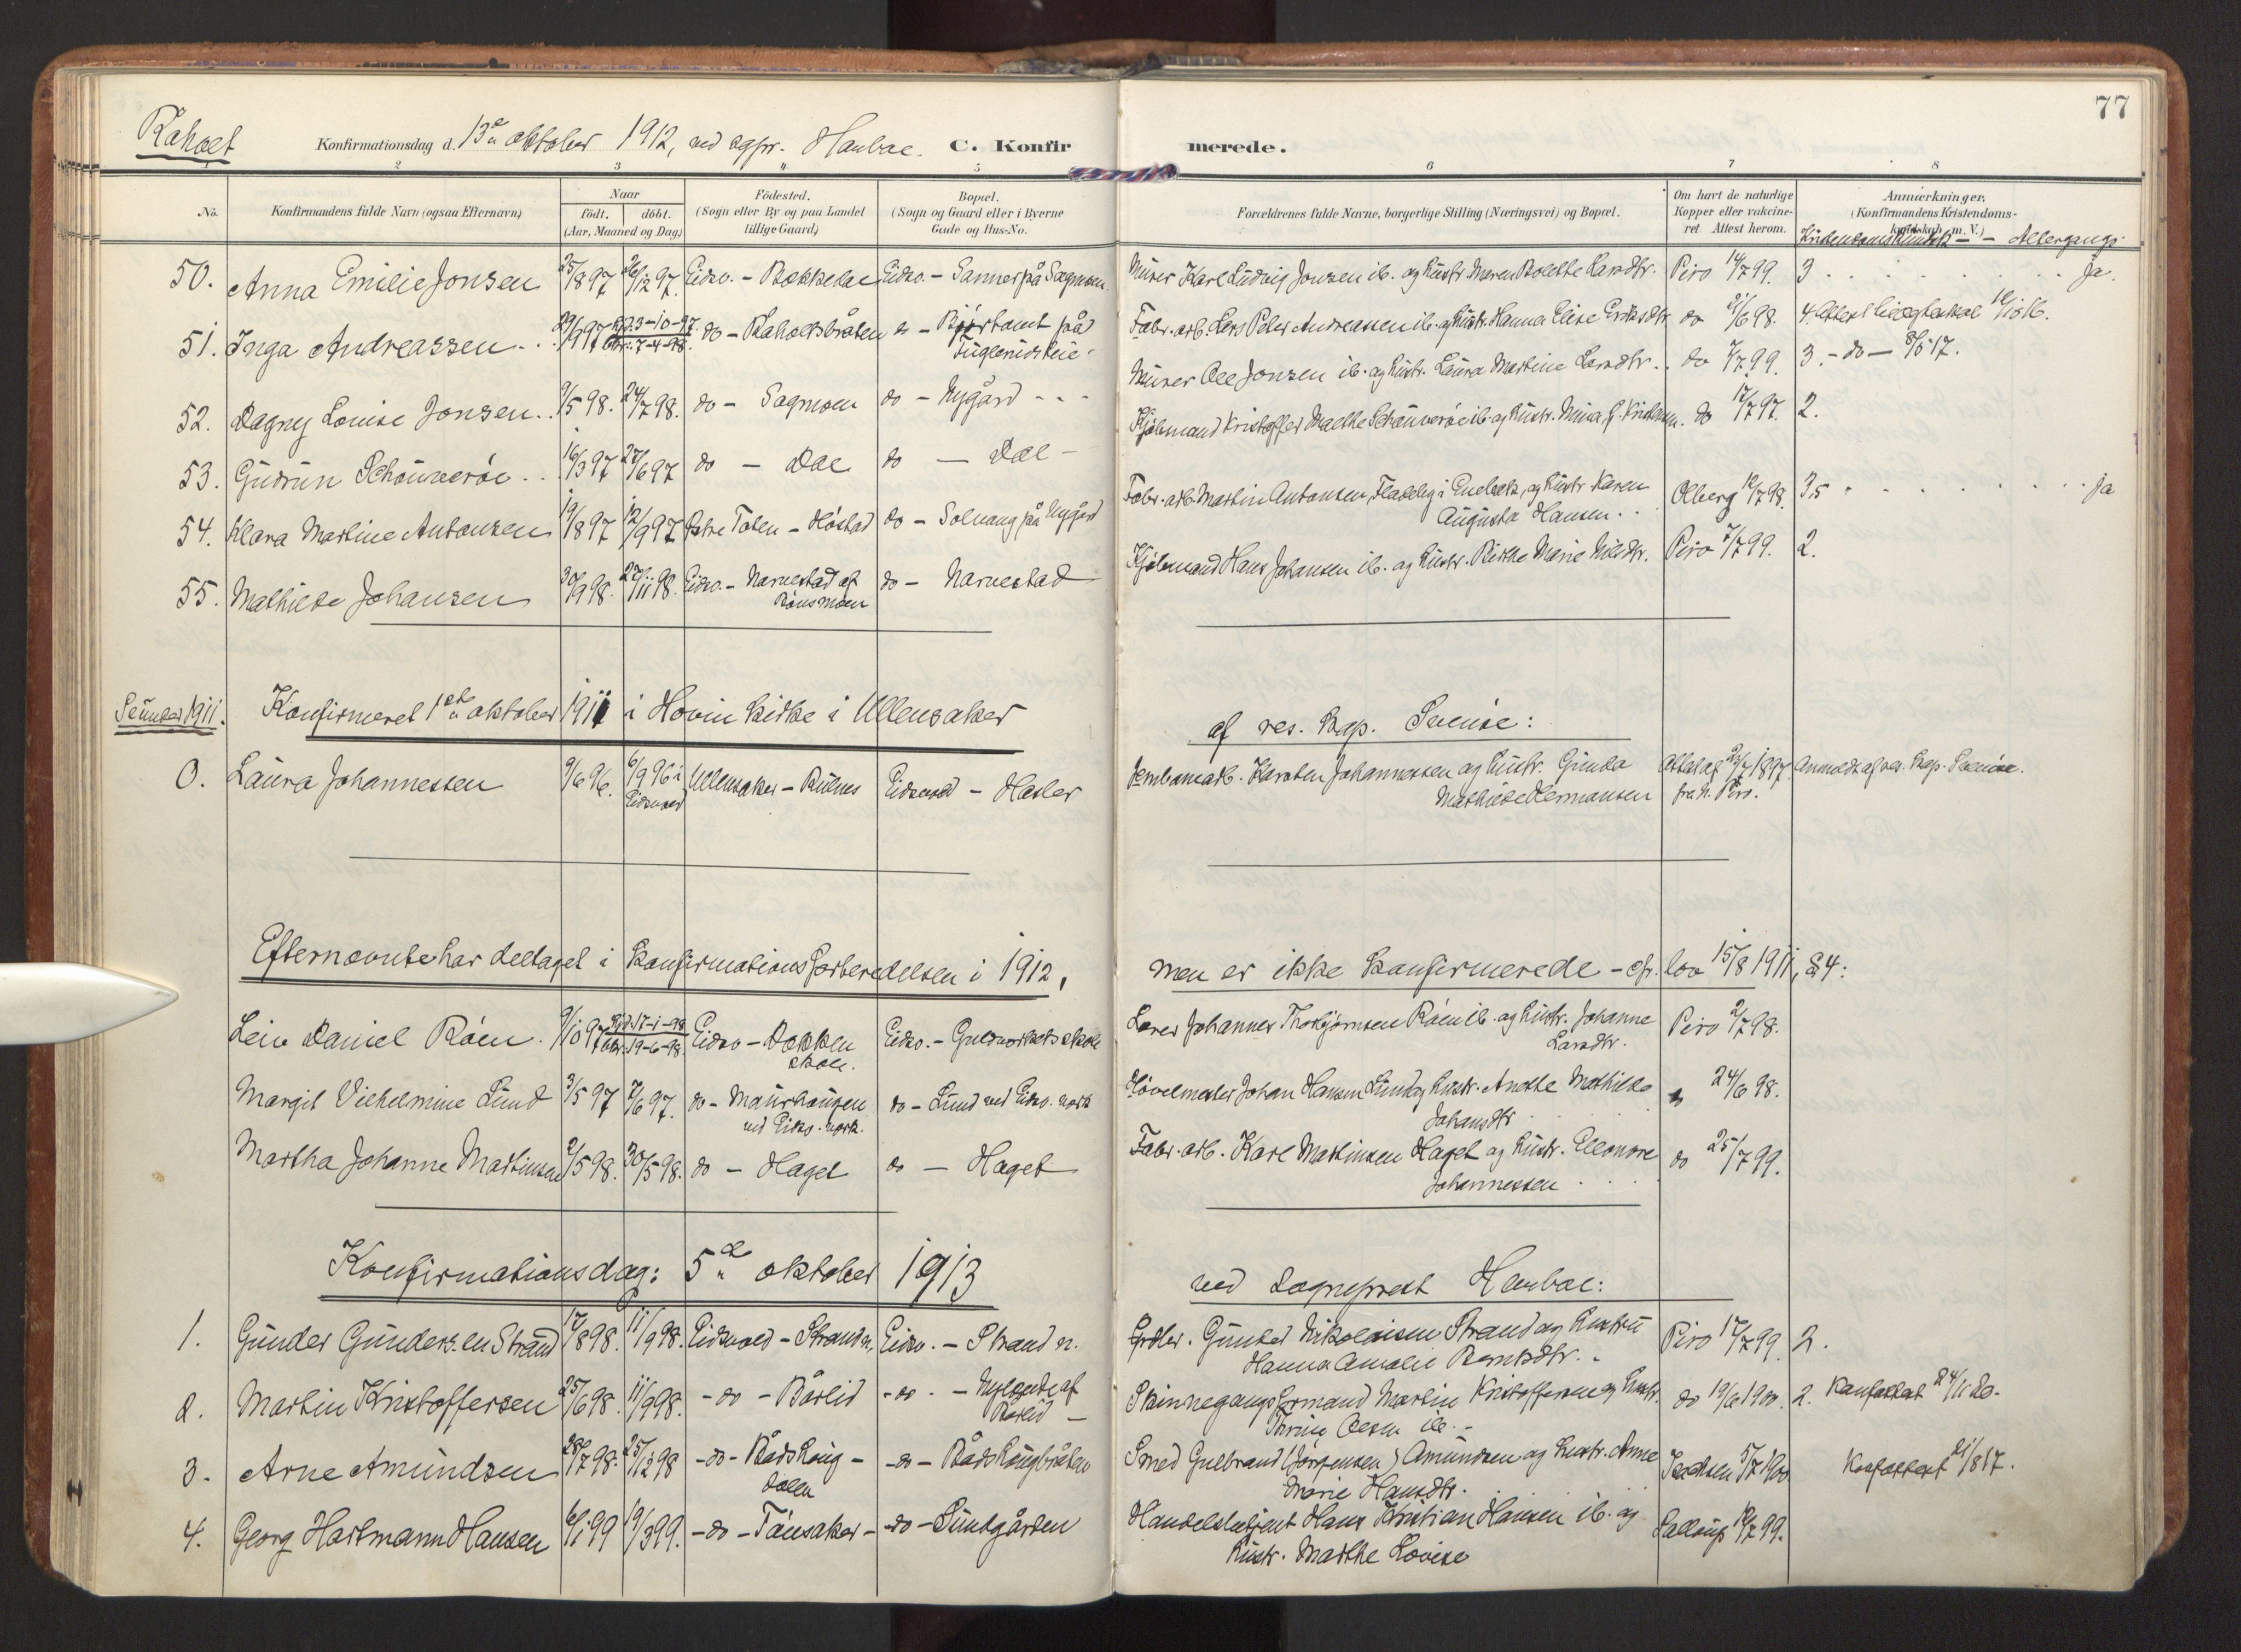 77
Råholt Konfirmationsdag d. 13de oktober 1912, ved sgpr. Haubac. C. Konfir merede.
1 2 3 4 5 6 7 8
No. Konfirmandens fulde Navn (ogsaa Efternavn) Naar födt. döbt. (Aar, Maaned og Dag) Födested. (Sogn eller By og paa Landet tillige Gaard) Bopæl. (Sogn og Gaard eller i Byerne Gade og Hus-No. Forældrenes fulde Navne, borgerlige Stilling (Næringsvei) og Bopæl. Om havt de naturlige Kopper eller vakcineret Attest herom. Anmærkninger. (Konfirmandens Kristendomskundskab m. V.)
50. Anna Emilie Jonsen 25/8 97 26/12 97. Eidsv. - Bekkedal Eidsv. - Sanner på Sagmoen Murer Karl Ludvig Jonsen ib. og hustr. Maren Bolette Larsdtr. Piro 14/7 99. 3 Ja.
51. Inga Andreassen 29/9 97 3-10-97 7-4-98. do - Råholtbråten Fabr. arb. Lars Peter Andreassen ib. og hustr. Hanna Elise Eriksdtr do 21/6 98. 4.
52. Dagny Louise Jonsen 9/5 98. 24/7 98. do - Sagmoen do - Nygård Murer Ole Jonsen ib. og hustr. Laura Martine Larsdtr. do 7/7 99. 3 - do - 8/5 17.
53. Gudrun Schouverøe 16/3 97 27/6 97 do - Dal do - Dal Kjøbmand Kristoffer Malthe Schouverøe ib. og hustr. do 17/7 97. 2.
54. Klara Martine Antonsen 19/8 97 12/9 97 Østre Toten - Høstad do - Solvang på Nygård Fabr. arb. Martin Antonsen, og hustr. Karen
Augusta Hansen Olberg 12/7 98. 3,5 ja
55. Mathilde Johansen 30/9 98. 27/11 98. Eidsv. - Narvestad af
Bønsmoen do - Narvestad Kjøbmand Hans Johansen ib. og hustr. Birthe Marie Nilsdtr. Piro 7/7 99. 2.
1911. Konfirmeret 1ste oktober 1911 i Hovin kirke i Ullensaker af res. kap.
0. Laura Johannessen 9/6 96. 6/9 96 i
Eidsvold Ullensaker - Eidsvold - Hasler Jernbanearb. Karsten Johannessen og hustr. Gunda
Mathilde Hermansen 1897 fra h. Piro. Anmeldt af res. kap.
Efternævnte har deltaget i konfirmationsforberedelsen i 1912, men er ikke konfirmerede - cfr. lov 15/8 1911, § 4:
Leiv Daniel Røen 9/10 97 17-1-98 19-6-98. Eidsv - Dokken
skole. Eidsv. - Guldverkets skole Lærer Johannes Thorbjørnsen Røen ib. og hustr. Johanne
Larsdtr. Piro 2/7 98.
Margit Vilhelmine Lund 3/5 97 7/6 97. do - Maurhaugen
ved Eidsv. verk. do - Lund ved Eidsv. verk Høvelmester Johan Hansen Lund og hustr. Anette Mathilde
Johansdtr do 24/6 98.
Martha Johanne Martinsen 2/5 98. 30/5 98. do - Haget do - Haget Fabr. arb. Karl Martinsen Haget og hustr. Elleonore
Johannessen do 25/7 99.
Konfirmationsdag: 5te oktober 1913 ved sogneprest Haubac:
1. Gunder Gundersen Strand 17/8 98. 11/9 98. Eidsvold - Strand n. Eidsv. - Strand n. Grdbr. Gunder Nikolaisen Strand og hustru
Hanna Amalie Berntsdtr. Piro 17/7 99 2.
2. Martin Kristoffersen 25/6 98. 11/9 98. - do - Bårlid - do - Nylende af
Bårlid - Skinnegangsformand Martin Kristoffersen og hustr.
Thrine Olsen ib. - do 19/6 1900. 2. Konfattest 24/11 20.
3. Arne Amundsen 28/7 98. 25/12 98 - do - Bådshaug-
dalen - do - Bådshaugbråten Smed Gulbrand (Jørgensen) Amundsen og hustr. Anne
Marie Hansdtr. 5/7 1900 Konfattest 21/8 17.
4. Georg Hartmann Hansen 6/1 99 19/3 99. - do - Tønsaker - - do - Sundgården Handelsbetjent Hans Kristian Hansen ib. og
hustr. Marthe Lovise 99.